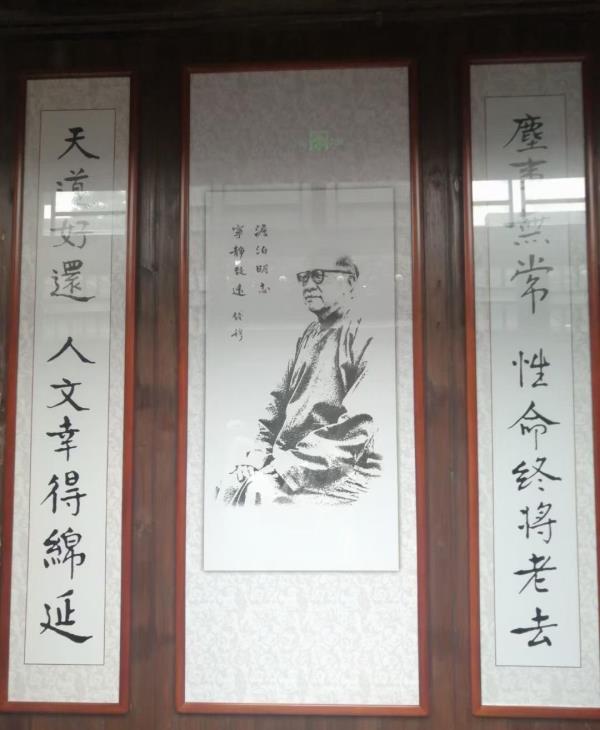 塵事無常 性命終將老去
淡泊明志
寧靜致遠 錢穆
天道好還 人文幸得綿延